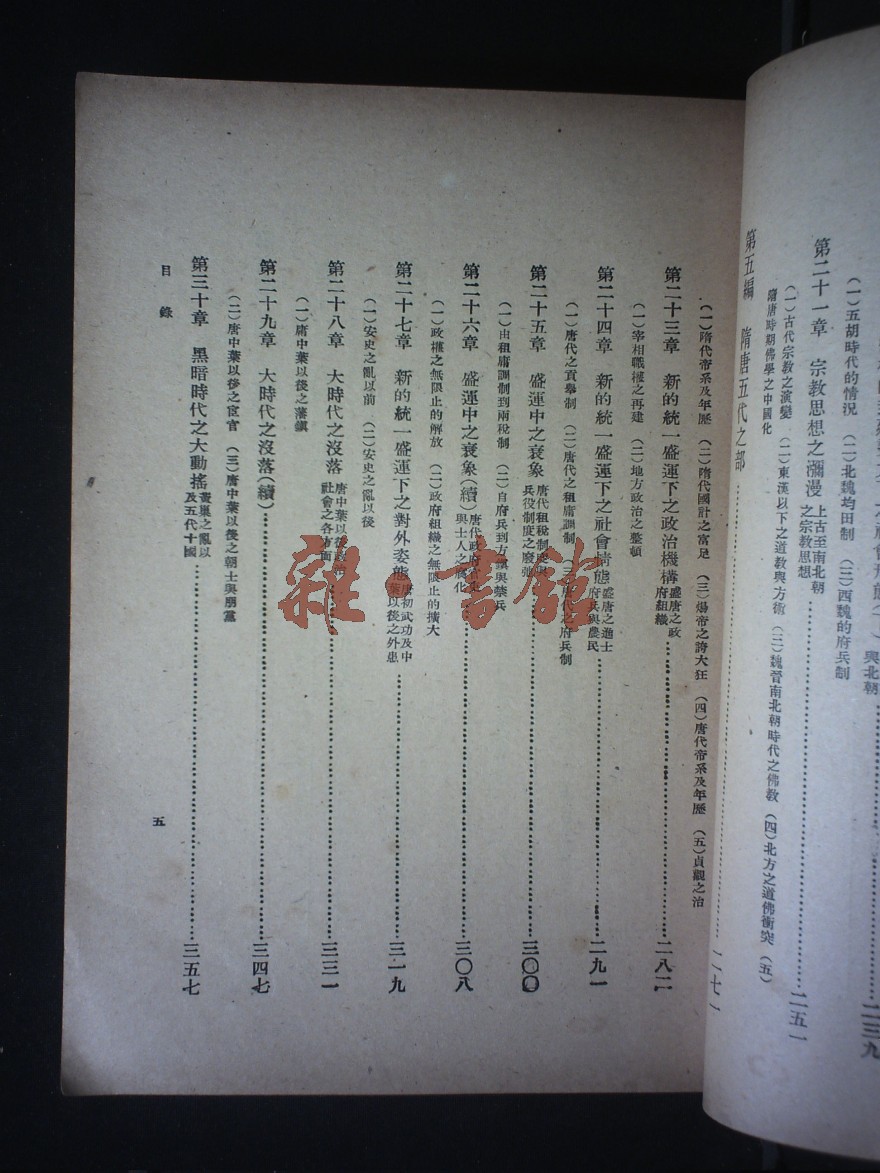 與北朝
二三九
(一)五胡時代的情況 (二)北魏均田制 (三)西魏的府兵制
第二十一章 宗教思想之瀰漫 上古至南北朝之宗教思想……二五一
(一)古代宗教之演變 (二)東漢以下之道教與方術 (三)魏晉南北朝時代之佛教 (四)北方之道佛衝突 (五)
隋唐時期佛學之中國化
第五編 隋唐五代之部……二七一
(一)隋代帝系及年歷 (二)隋代國計之富足 (三)煬帝之誇大狂 (四)唐代帝系及年歷 (五)貞觀之治
第二十三章 新的統一盛運下之政治機構 盛唐之政府組織……二八二
(一)宰相職權之再建 (二)地方政治之整頓
第二十四章 新的統一盛運下之社會情態 盛唐之進士府兵與農民……二九一
(一)唐代之貢舉制 (二)唐代之租庸調制 (三)唐代之府兵制
第二十五章 盛運中之衰象 唐代租稅制度與兵役制度之廢弛……三〇〇
(一)由租庸調制到兩稅制 (二)自府兵到方鎮與禁兵
第二十六章 盛運中之衰象(續) 唐代政府官吏與士人之腐化……三〇八
(一)政權之無限止的解放 (二)政府組織之無限止的擴大
第二十七章 新的統一盛運下之對外姿態 唐初武功及中葉以後之外患……三一九
(一)安史之亂以前 (二)安史之亂以後
第二十八章 大時代之沒落 唐中葉以後政治社會之各方面……三三一
(一)唐中葉以後之藩鎮
第二十九章 大時代之沒落(續)……三四七
(二)唐中葉以後之宦官 (三)唐中葉以後之朝士與朋黨
第三十章 黑暗時代之大動搖 黃巢之亂以及五代十國……三五七
目錄
五
雜書館